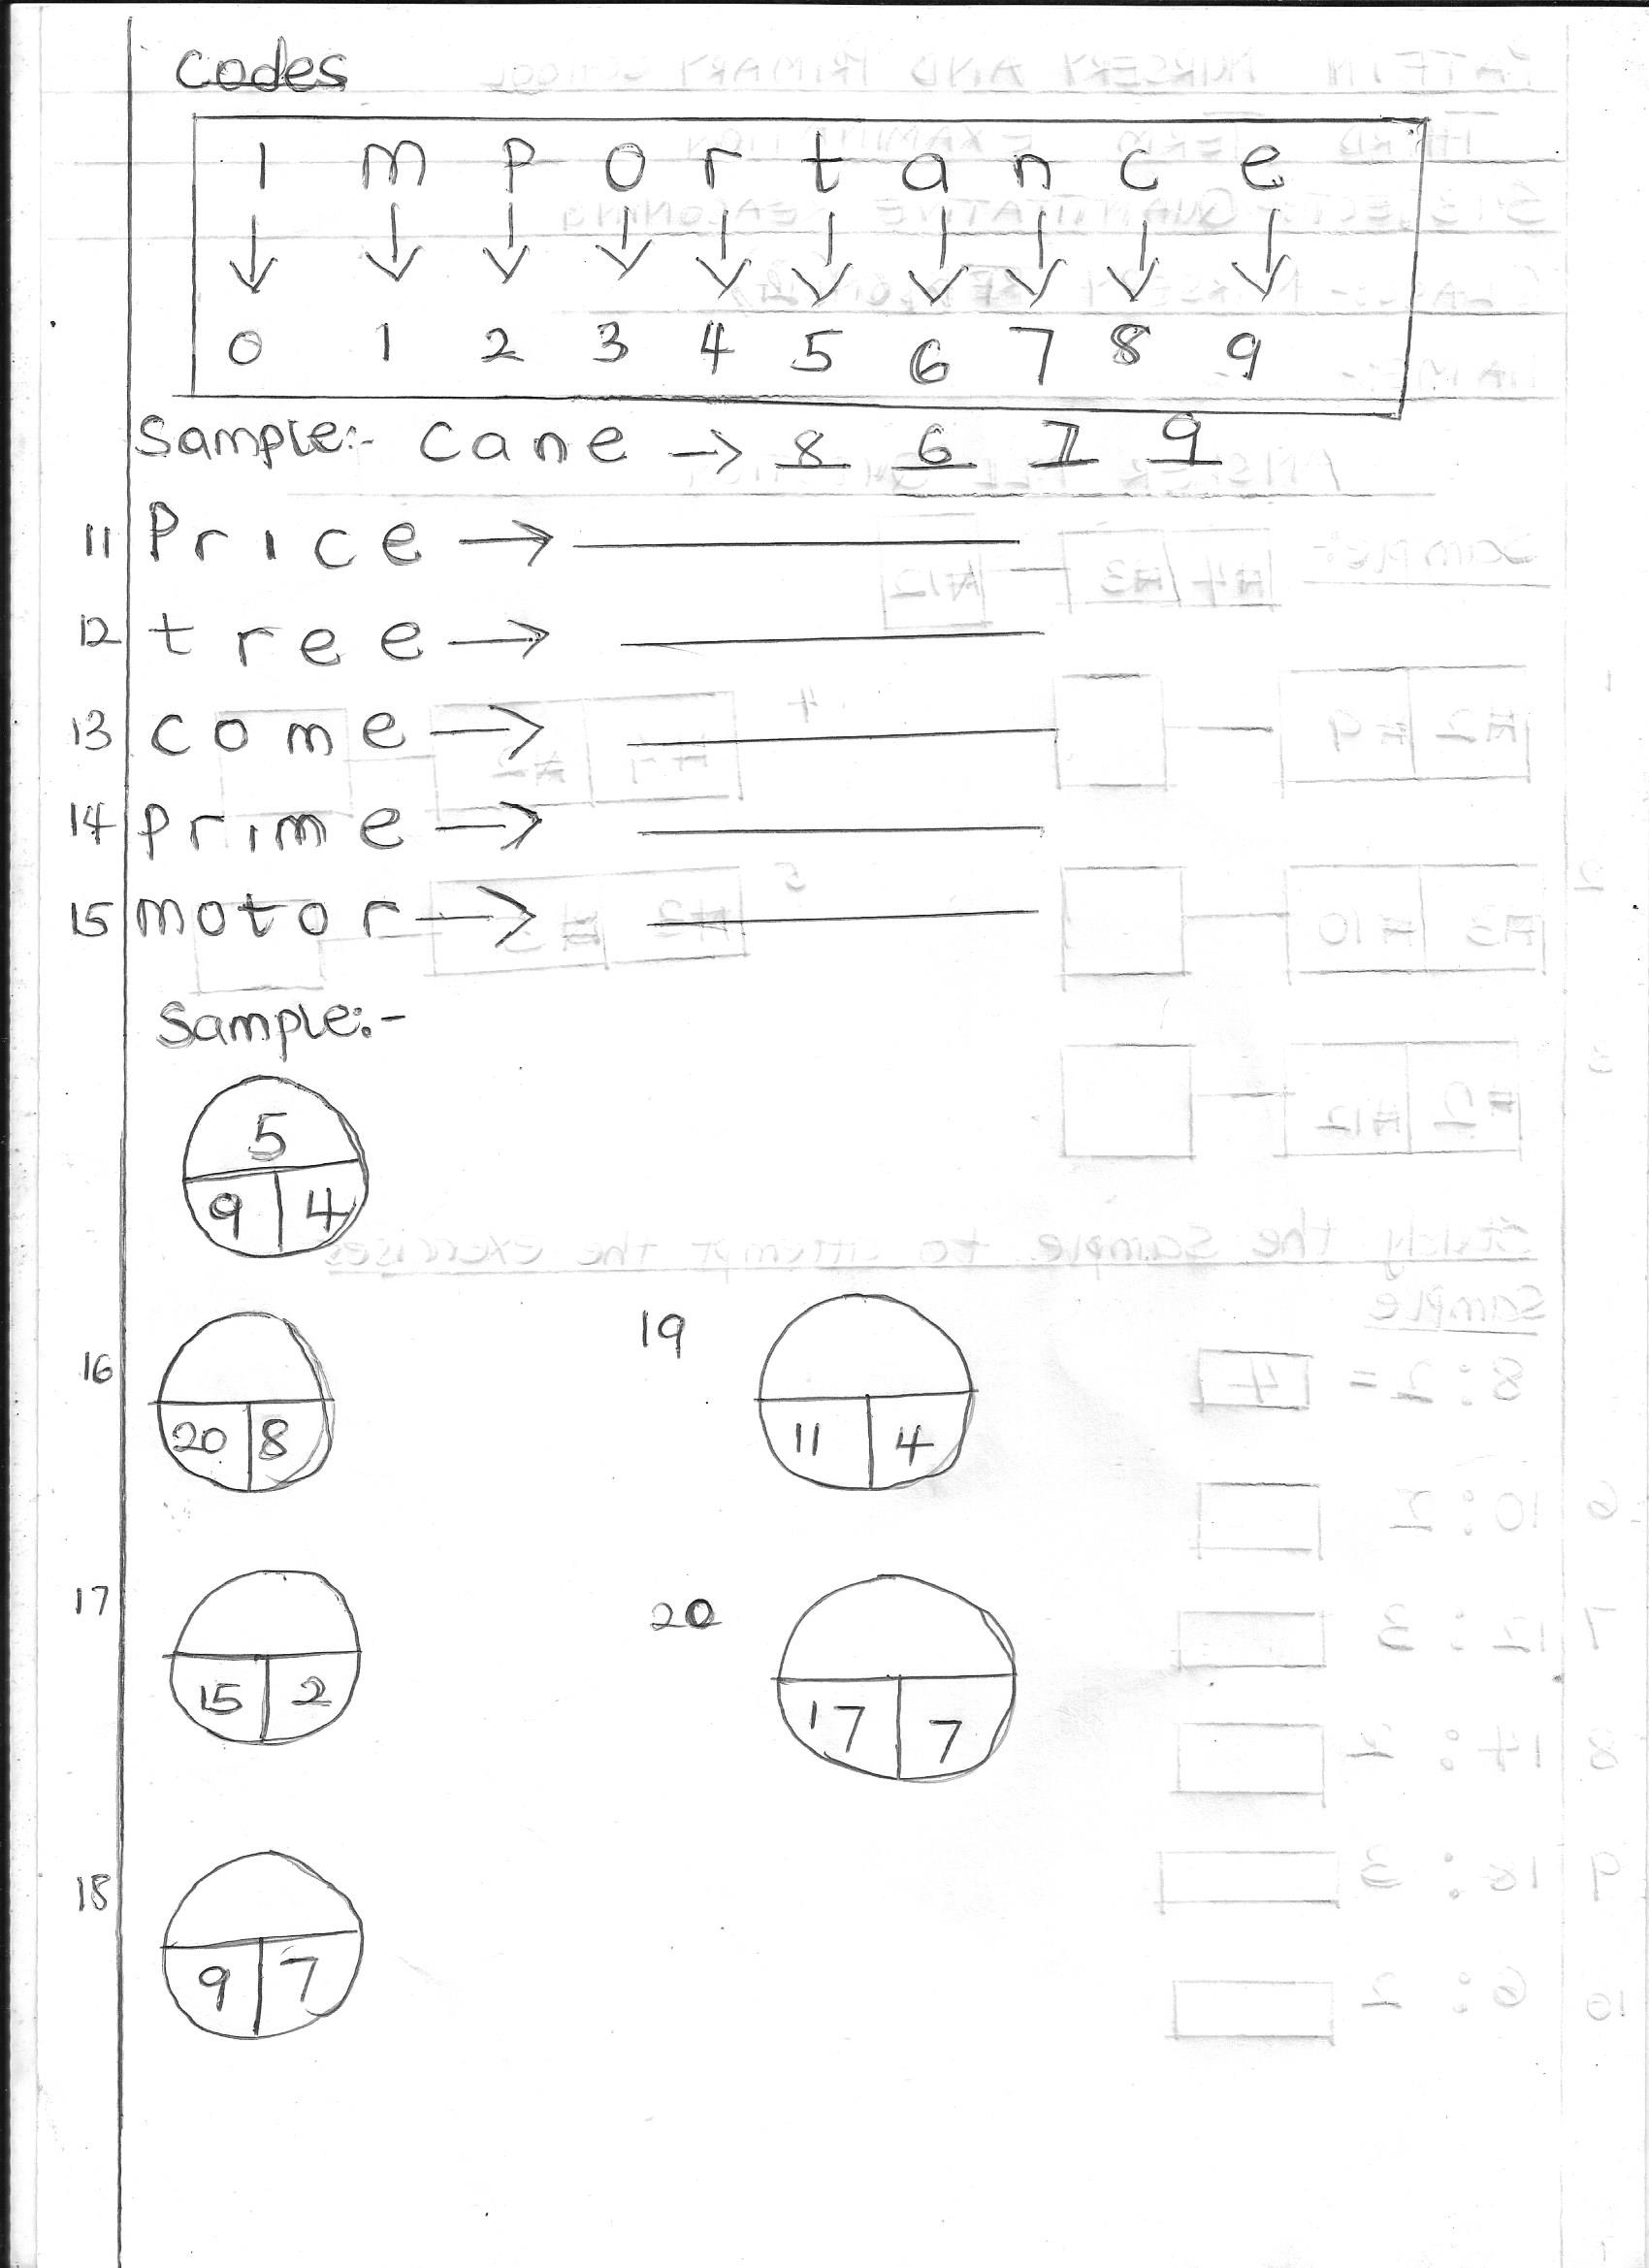 Codes
I m p o r t a n c e
0 1 2 3 4 5 6 7 8 9
Sample:- cane → 8 6 7 9
11 Price →
12 tree →
13 come →
14 prime →
15 motor →
Sample:-
5
9 4
16
20 8
19
11 4
17
15 2
20
17 7
18
9 7